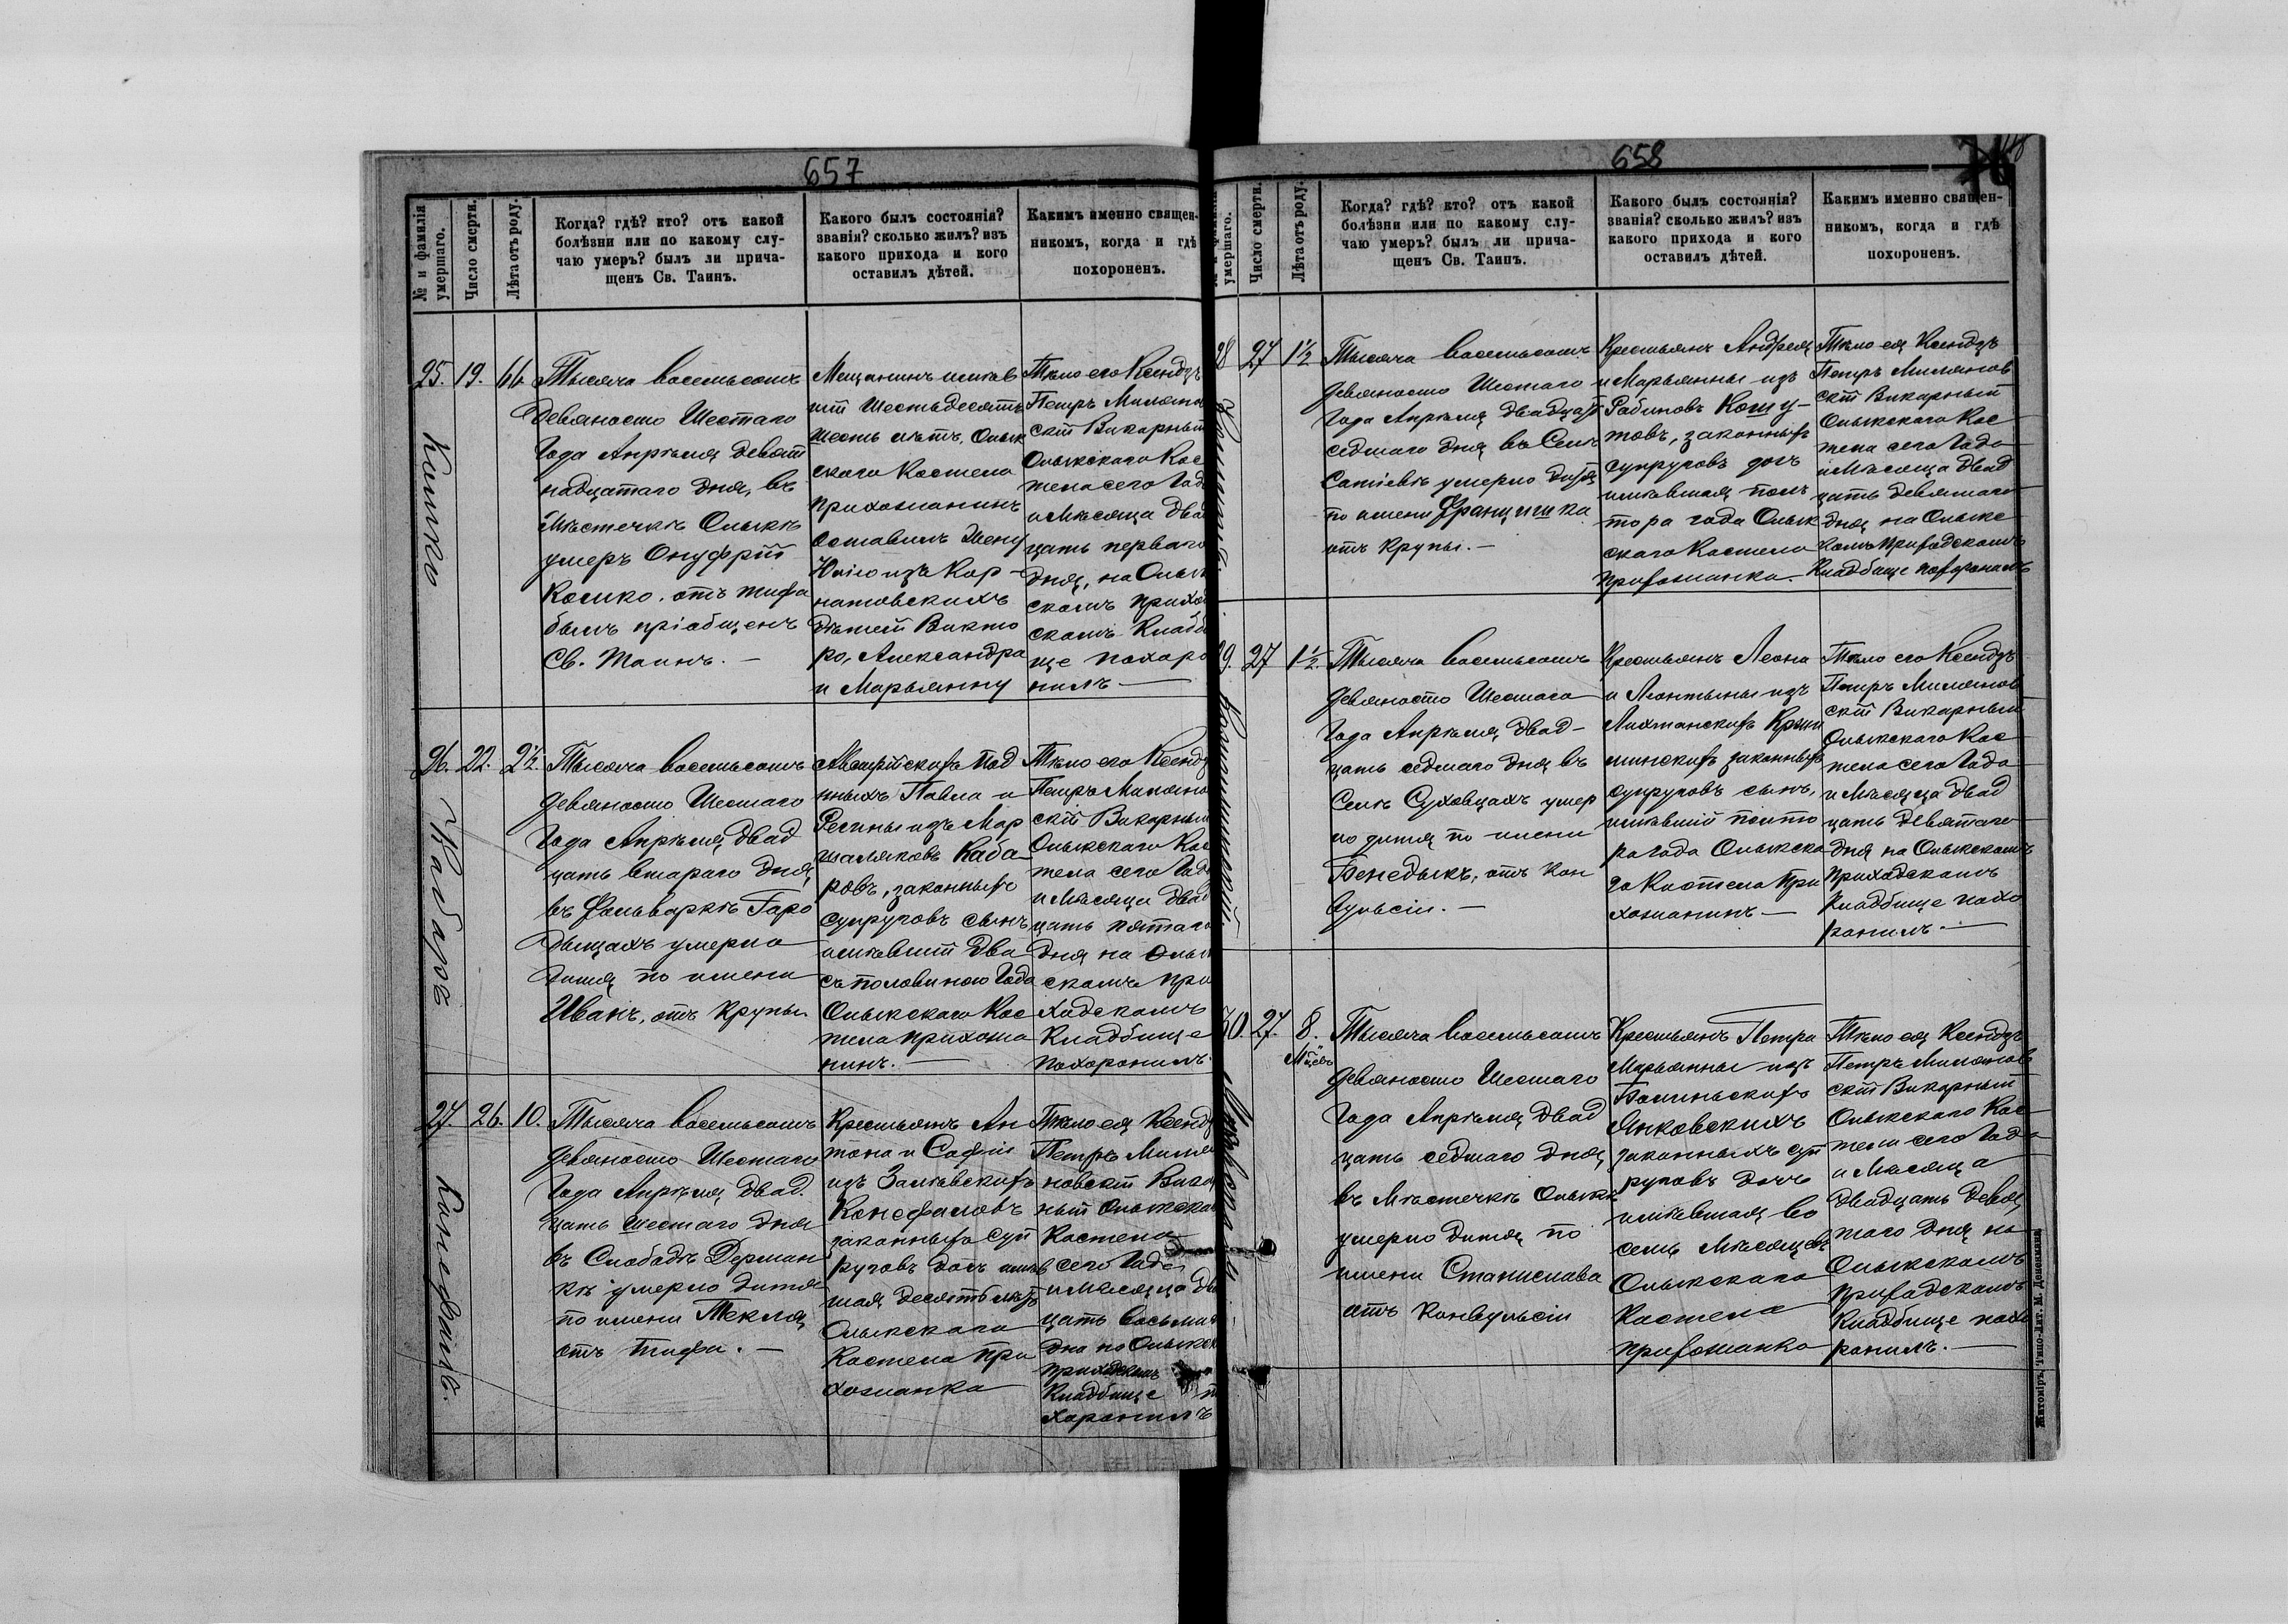 657
№ и фамилія умершаго.
Число смерти.
Лѣта отъ роду.
Когда? гдѣ? кто? отъ какой
болѣзни или по какому слу-
чаю умеръ? былъ ли прича-
щенъ Св. Таинъ.
Какого былъ состоянія?
званія? сколько жилъ? изъ
какого прихода и кого
оставилъ дѣтей.
Какимъ именно священ-
никомъ, когда и гдѣ
похороненъ.
25.
19.
66
Тысяча восемьсотъ
Девяносто Шестаго
Года Апрѣля девят
надцатаго дня, въ
Мѣстечкѣ Олыкѣ
умеръ Онуфрій
отъ тифа
былъ пріобщенъ
Св. Таинъ. —
Мещанинъ имѣв
шій Шестьдесятъ
Шесть лѣтъ, Олык
скаго Костела
прихожанинъ
оставилъ Жену
Юлію изъ Кор-
натовскихъ
дѣтей Викто
ра, Александра
и Марьянну
Тѣло его Ксендзъ
Петръ Миляно
скій Викарный
Олыкскаго Кос
тела сего Года
и Мѣсяца Двад
цать перваго
дня, на Олык
скомъ приход
скомъ Кладби
ще похоро
нилъ —
26.
22.
2½.
Кабаръ
Тысяча восемьсотъ
Девяносто Шестаго
Года Апрѣля Двад
цать втораго дня,
въ Фольваркѣ Горо
дыщахъ умерло
дитя по имени
Иванъ, отъ Крупы
Австрійскихъ Под
нныхъ Павла и
Регины изъ Мар
шаляковъ Каба-
ровъ, законныхъ
супруговъ сынъ
имѣвшій два
съ половиною Года
Олыкскаго Кос
тела прихожа
нинъ. —
Тѣло его Ксендз
Петръ Миляно
скій Викарный
Олыкскаго Кос
тела сего Года
и Мѣсяца Двад
цать пятаго
дня на Олык
скомъ при
ходскомъ
Кладбище
похоронилъ.
27.
26.
10.
Тысяча восемьсотъ
Девяносто Шестаго
Года Апрѣля Двад.
цать шестаго дня
въ Слободѣ Дерман
кѣ умерло дитя
по имени Текля,
отъ тифа. —
Крестьянъ Ан
тона и Софіи
изъ
законныхъ суп
руговъ дочь имѣв
шая десять лѣтъ
Олыкскаго
Костела при
хожанка
Тѣло ея Ксендз
Петръ Миля
новскій Вика
ный Олыкска
Костела
сего Года
и Мѣсяца Два
цать восьма
дня на Олыкск
приходскомъ
Кладбище п
хоронилъ
658
умершаго.
Число смерти.
Лѣта отъ роду.
Когда? гдѣ? кто? отъ какой
болѣзни или по какому слу-
чаю умеръ? былъ ли прича-
щенъ Св. Таинъ.
Какого былъ состоянія?
званія? сколько жилъ? изъ
какого прихода и кого
оставилъ дѣтей.
Какимъ именно священ-
никомъ, когда и гдѣ
похороненъ.
28
27
1½
Тысяча восемьсотъ
Девяносто Шестаго
Года Апрѣля двадцать
седмаго дня въ Селѣ
умерло дитя
по имени Францишка
отъ Крупы. —
Крестьянъ Андрея
и Марьянны изъ
Рабиновъ Кошу-
товъ, законныхъ
супруговъ дочь
имѣвшая пол
тора года Олык
скаго Костела
прихожанка. —
Тѣло ея Ксендзъ
Петръ Милянов
скій Викарный
Олыкскаго Кос
тела сего Года
и Мѣсяца двад
цать девятаго
дня на Олыкс
комъ приходскомъ
Кладбище похоронилъ
29.
27
1½.
Тысяча восемьсотъ
Девяносто Шестаго
Года Апрѣля, двад-
цать седмаго дня въ
Селѣ Суховцахъ умер
ло дитя по имени
Бенедыкъ, отъ Кон
вульсіи. —
Крестьянъ Леона
и Леонтыны изъ
законныхъ
супруговъ сынъ,
имѣвшій полто
ра года Олыкска
го Костела При
хожанинъ —
Тѣло его Ксендзъ
Петръ Милянов
скій Викарный
Олыкскаго Кос
тела сего Года
и Мѣсяца двад
цать девятаго
дня на Олыкскомъ
приходскомъ
Кладбище похо
ронилъ. —
30.
27.
8.
Мѣсяц.
Тысяча восемьсотъ
Девяносто Шестаго
Года Апрѣля двад
цать седмаго дня,
въ Мѣстечкѣ Олыкѣ
умерло дитя, по
имени Станислава
отъ Конвульсіи
Крестьянъ Петра
Марьянны изъ
Янковскихъ
законныхъ суп
руговъ дочь
имѣвшая во
семь Мѣсяцевъ
Олыкскаго
Костела
прихожанка
Тѣло ея Ксендзъ
Петръ Милянов
скій Викарный
Олыкскаго Кос
тела сего Года
и Мѣсяца
двадцать девя
таго дня на
Олыкскомъ
приходскомъ
Кладбище похо
ронилъ. —
Житоміръ, Типо-Лит. М. Дененмана.